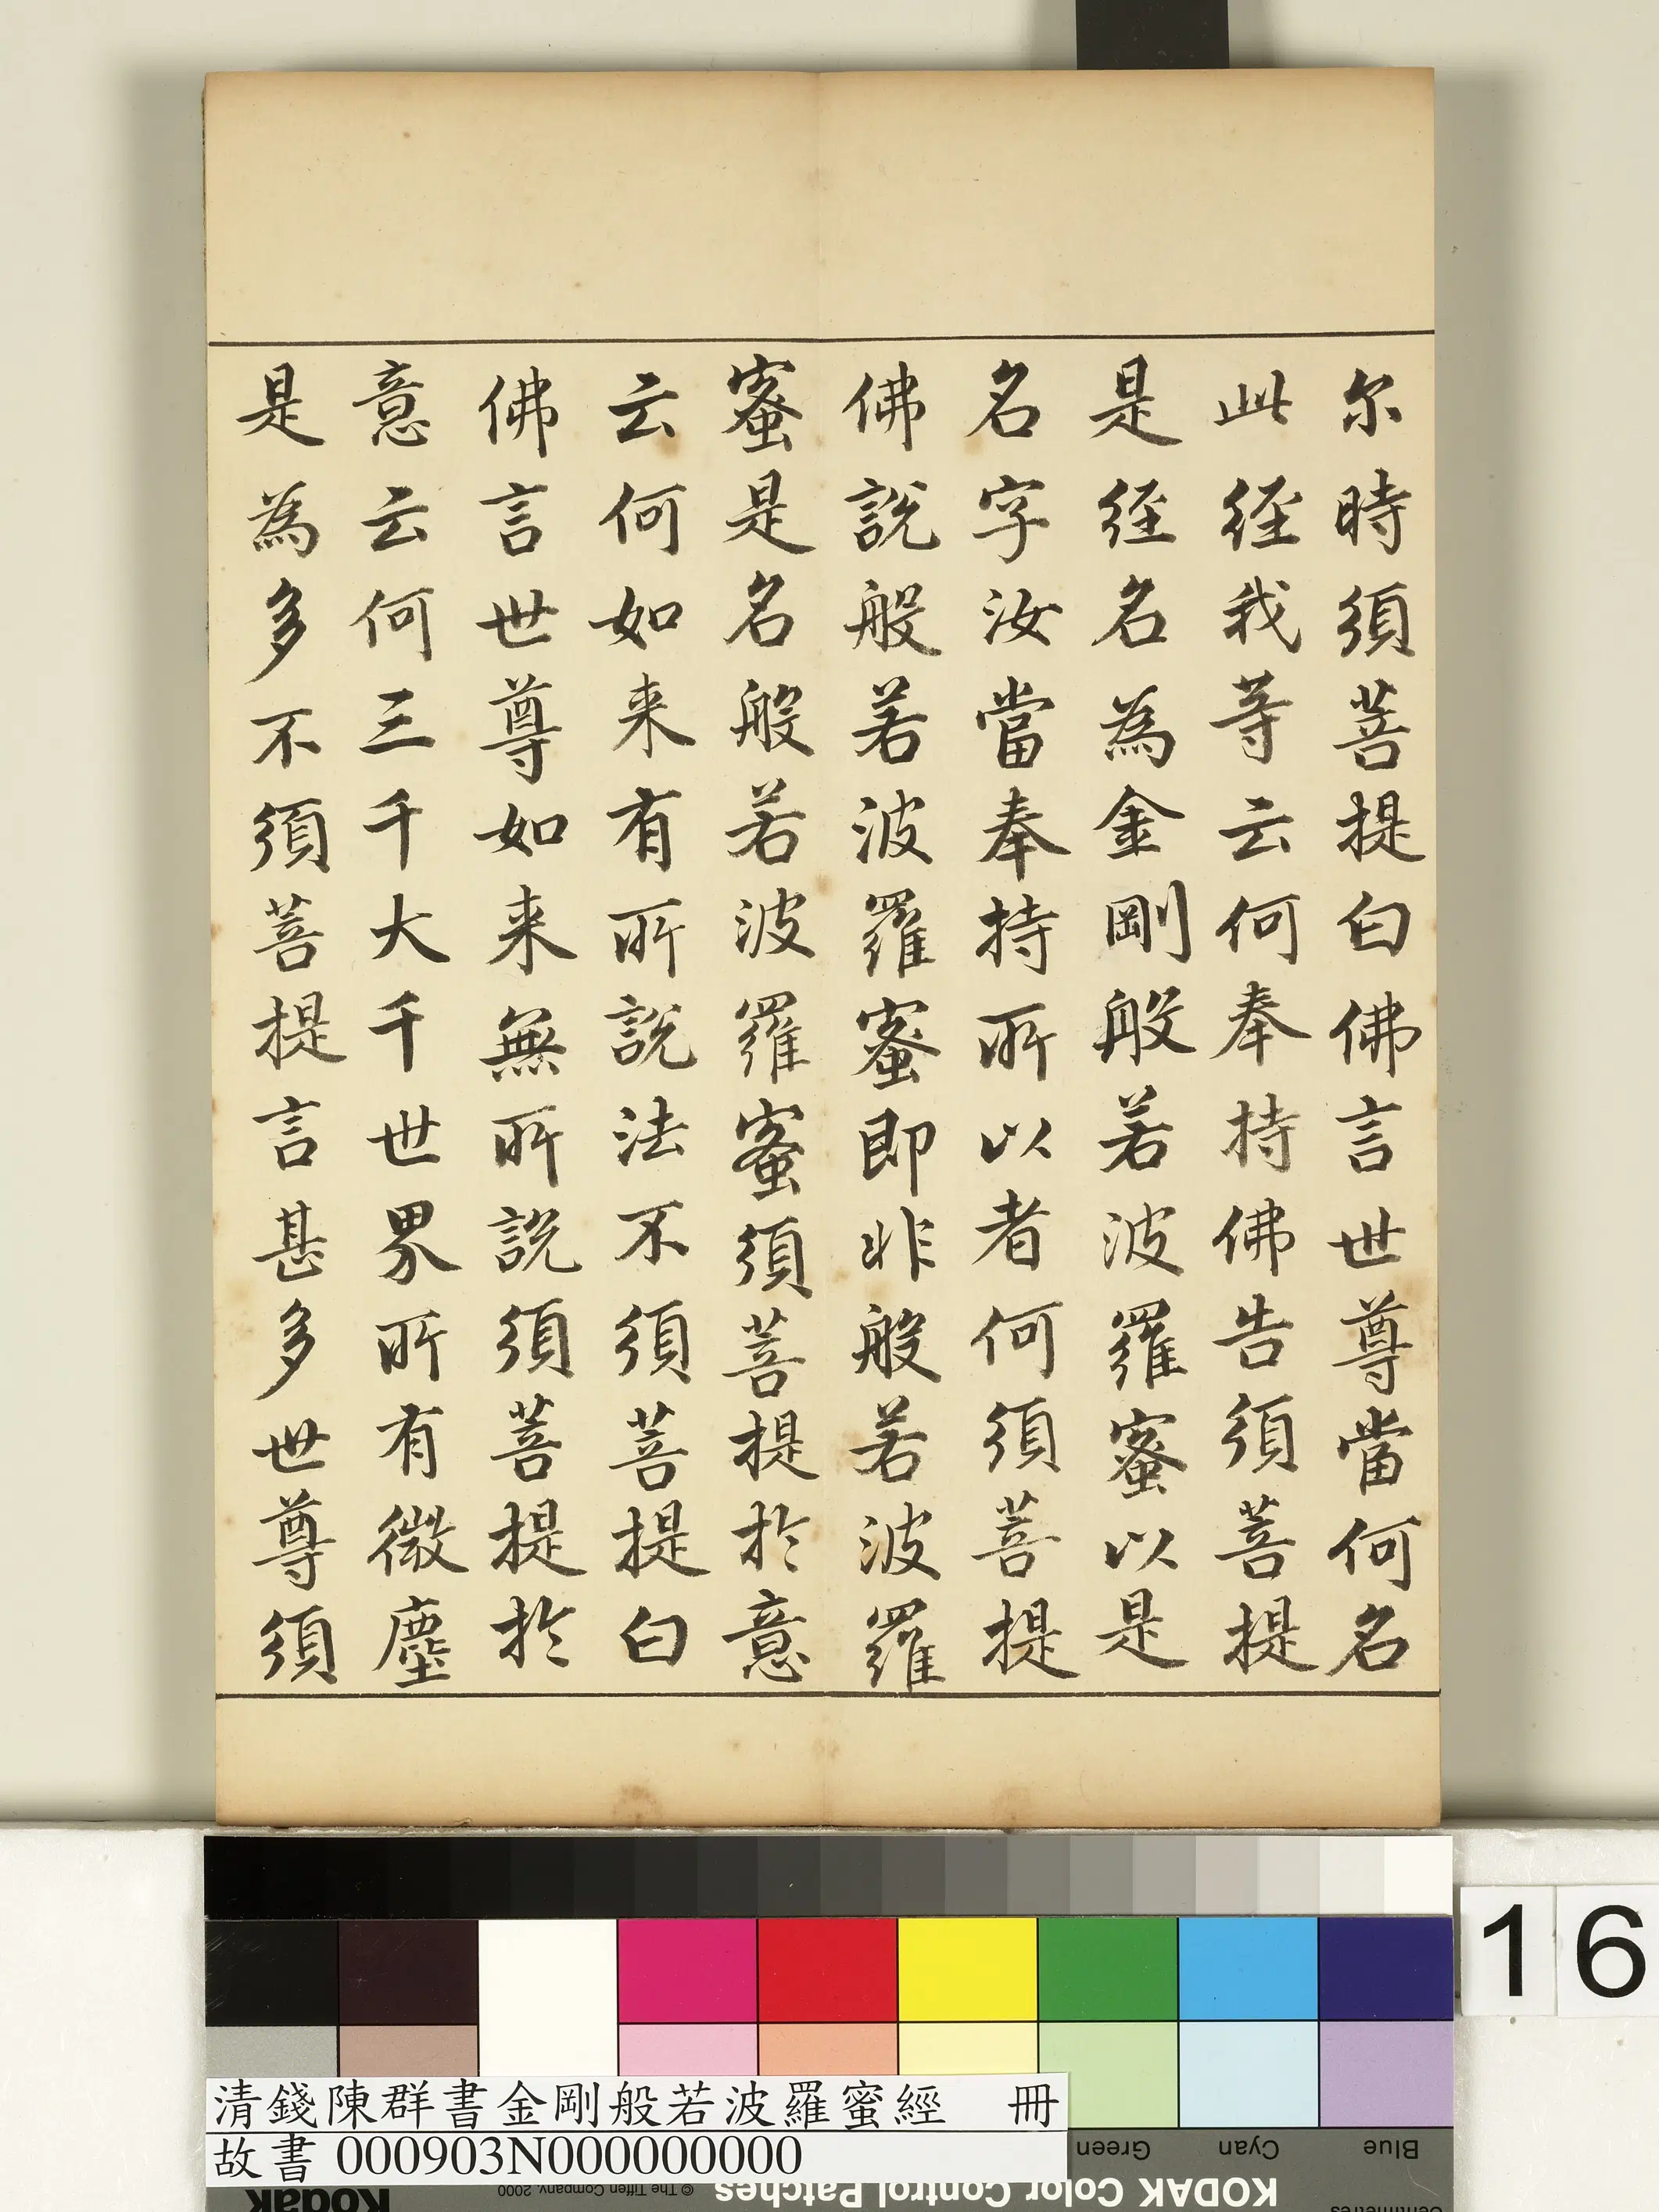 尔時須菩提白佛言世尊當何名
此經我等云何奉持佛告須菩提
是經名為金剛般若波羅蜜以是
名字汝當奉持所以者何須菩提
佛說般若波羅蜜即非般若波羅
蜜是名般若波羅蜜須菩提於意
云何如来有所說法不須菩提白
佛言世尊如来無所說須菩提於
意云何三千大千世界所有微塵
是為多不須菩提言甚多世尊須
16
清錢陳群書金剛般若波羅蜜經 冊
故書 000903N000000000
Green Cyan Blue
© The Tiffen Company, 2000
KODAK Color Control Patches
Kodak
Centimetres